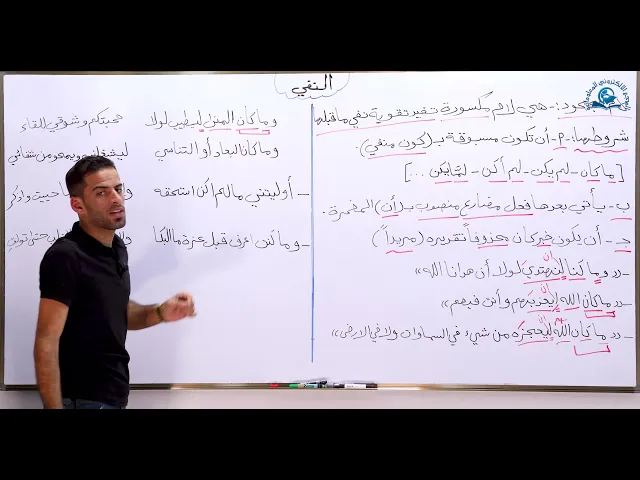 النفي
الجحود:- هي لام مكسورة تفيد تقوية نفي ما قبلها
شروطها:- م - أن تكون مسبوقة بـ (كون منفي).
[ ما كان - لم يكن - لم أكن - لما يكن ...]
ب - يأتي بعدها فعل مضارع منصوب بـ أن) المضمرة.
جـ - أن يكون خبر كان محذوفاً تقريره (مريداً)
" وما كنا لنهتدي لولا أن هدانا الله "
أن
" ما كان الله ليعذبهم وأنت فيهم "
" ما كان الله ليعجزه من شيء في السماوات ولا في الأرض "
وما كان المنزل ليطيب لولا محبتكم وشوقي للقاء
وما كان البعاد أو التناسي
- أوليتني ما لم أكن استحقه
- وما كنت اعرف قبل عزة ما البكا